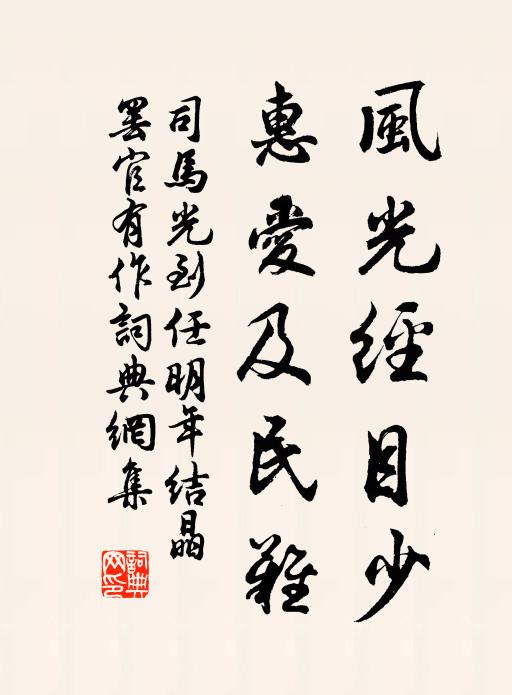 風光經目少
惠愛及民難
司馬光到任明年結晶
罷官有作詞典網集
詞典網印